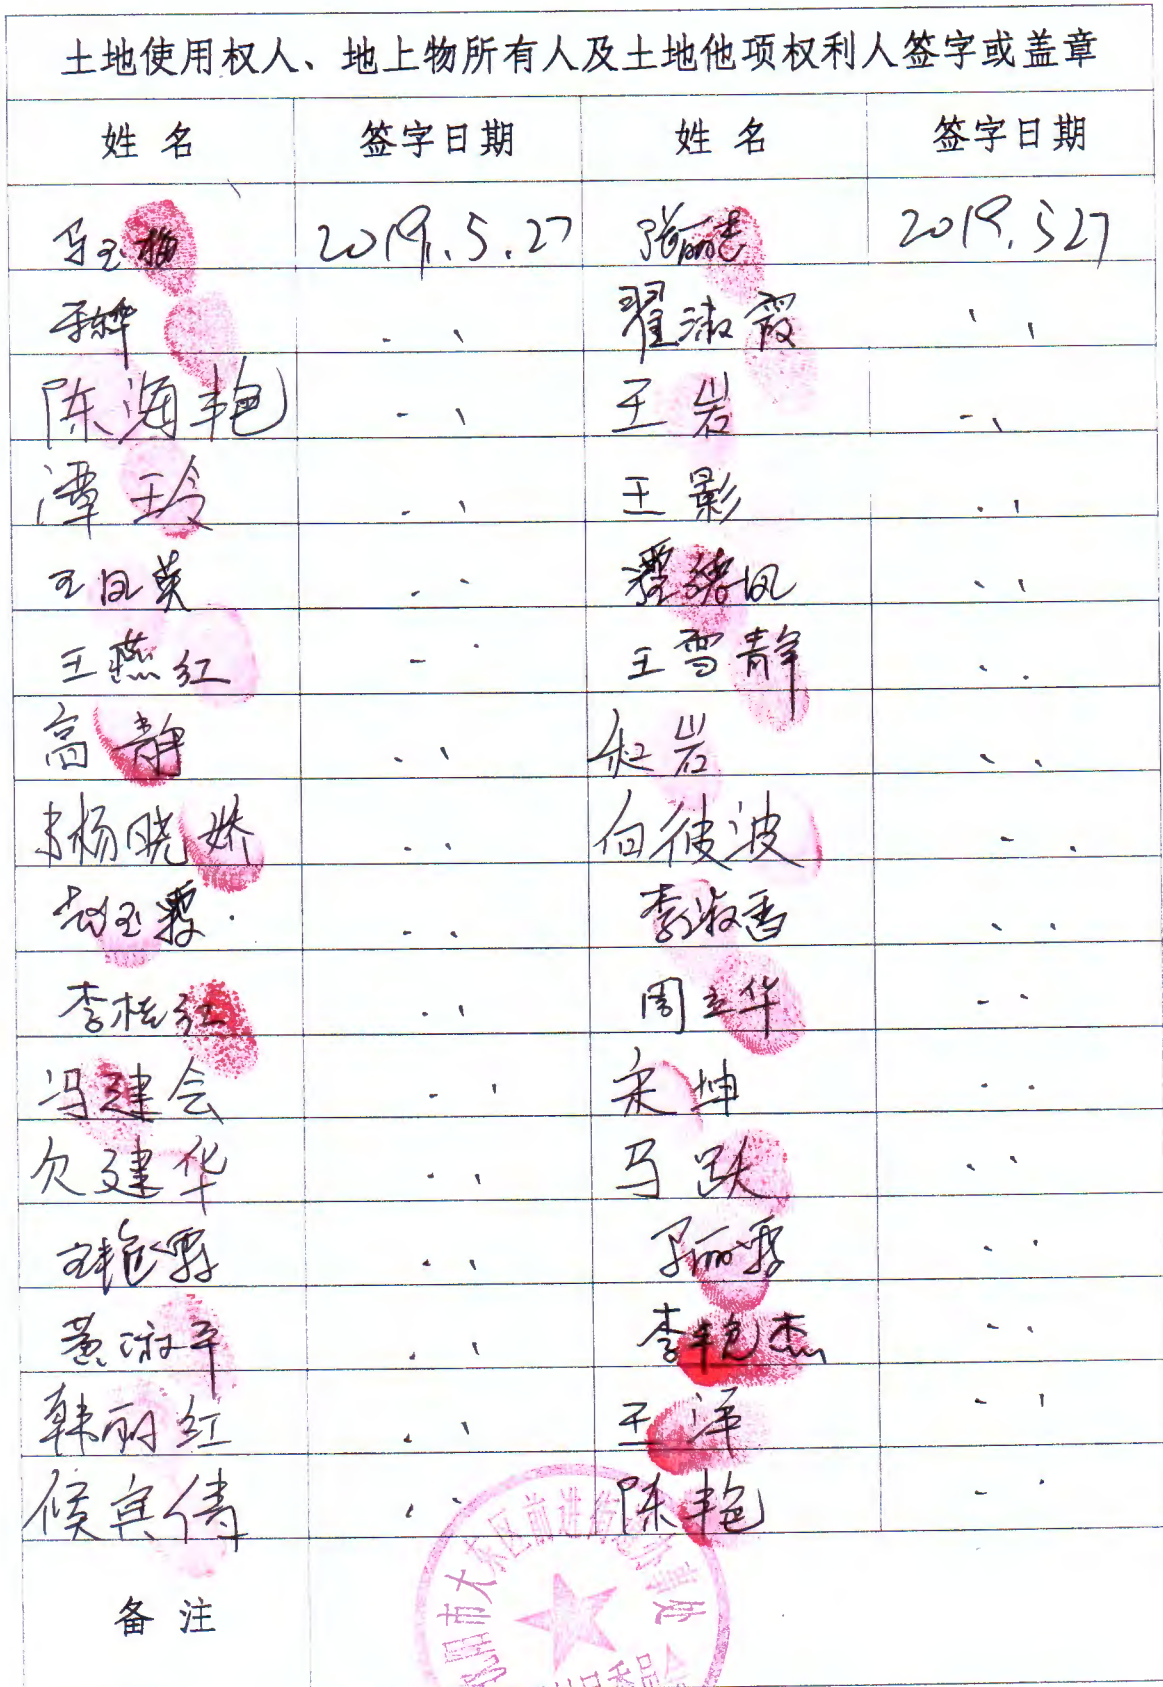 土地使用权人、地上物所有人及土地他项权利人签字或盖章
姓名 签字日期 姓名 签字日期
马玉梅 2019.5.27 张丽杰 2019.527
翟淑霞
陈海艳 王岩
潭玲 王影
王凤英 凤
王燕红 王雪静
高静 赵岩
杨晓娇 白彼波
赵玉霞 李淑香
李桂红 周立华
冯建会 宋坤
欠建华 马跃
艳霞 丽霞
黄淑平 李艳杰
韩丽红 王洋
候宾倩 陈艳
备注
市大东区前进街道办事处